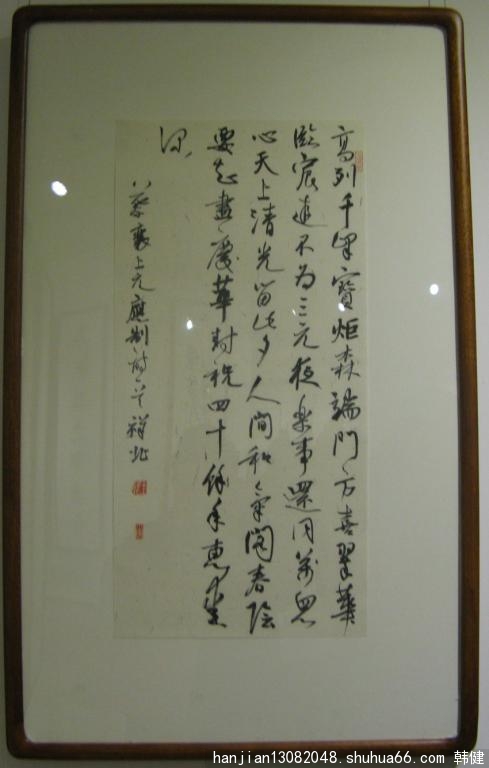 高列千峰寶炬森端門方喜翠華
臨宸遊不为三元夜樂事還同萬眾
心天上清光留此夕人間和氣閣春陰
要知盡慶華封祝四十餘年惠愛
深
蔡襄上元應制詩 祥
hanjian13082048.shuhua66.com 韩健